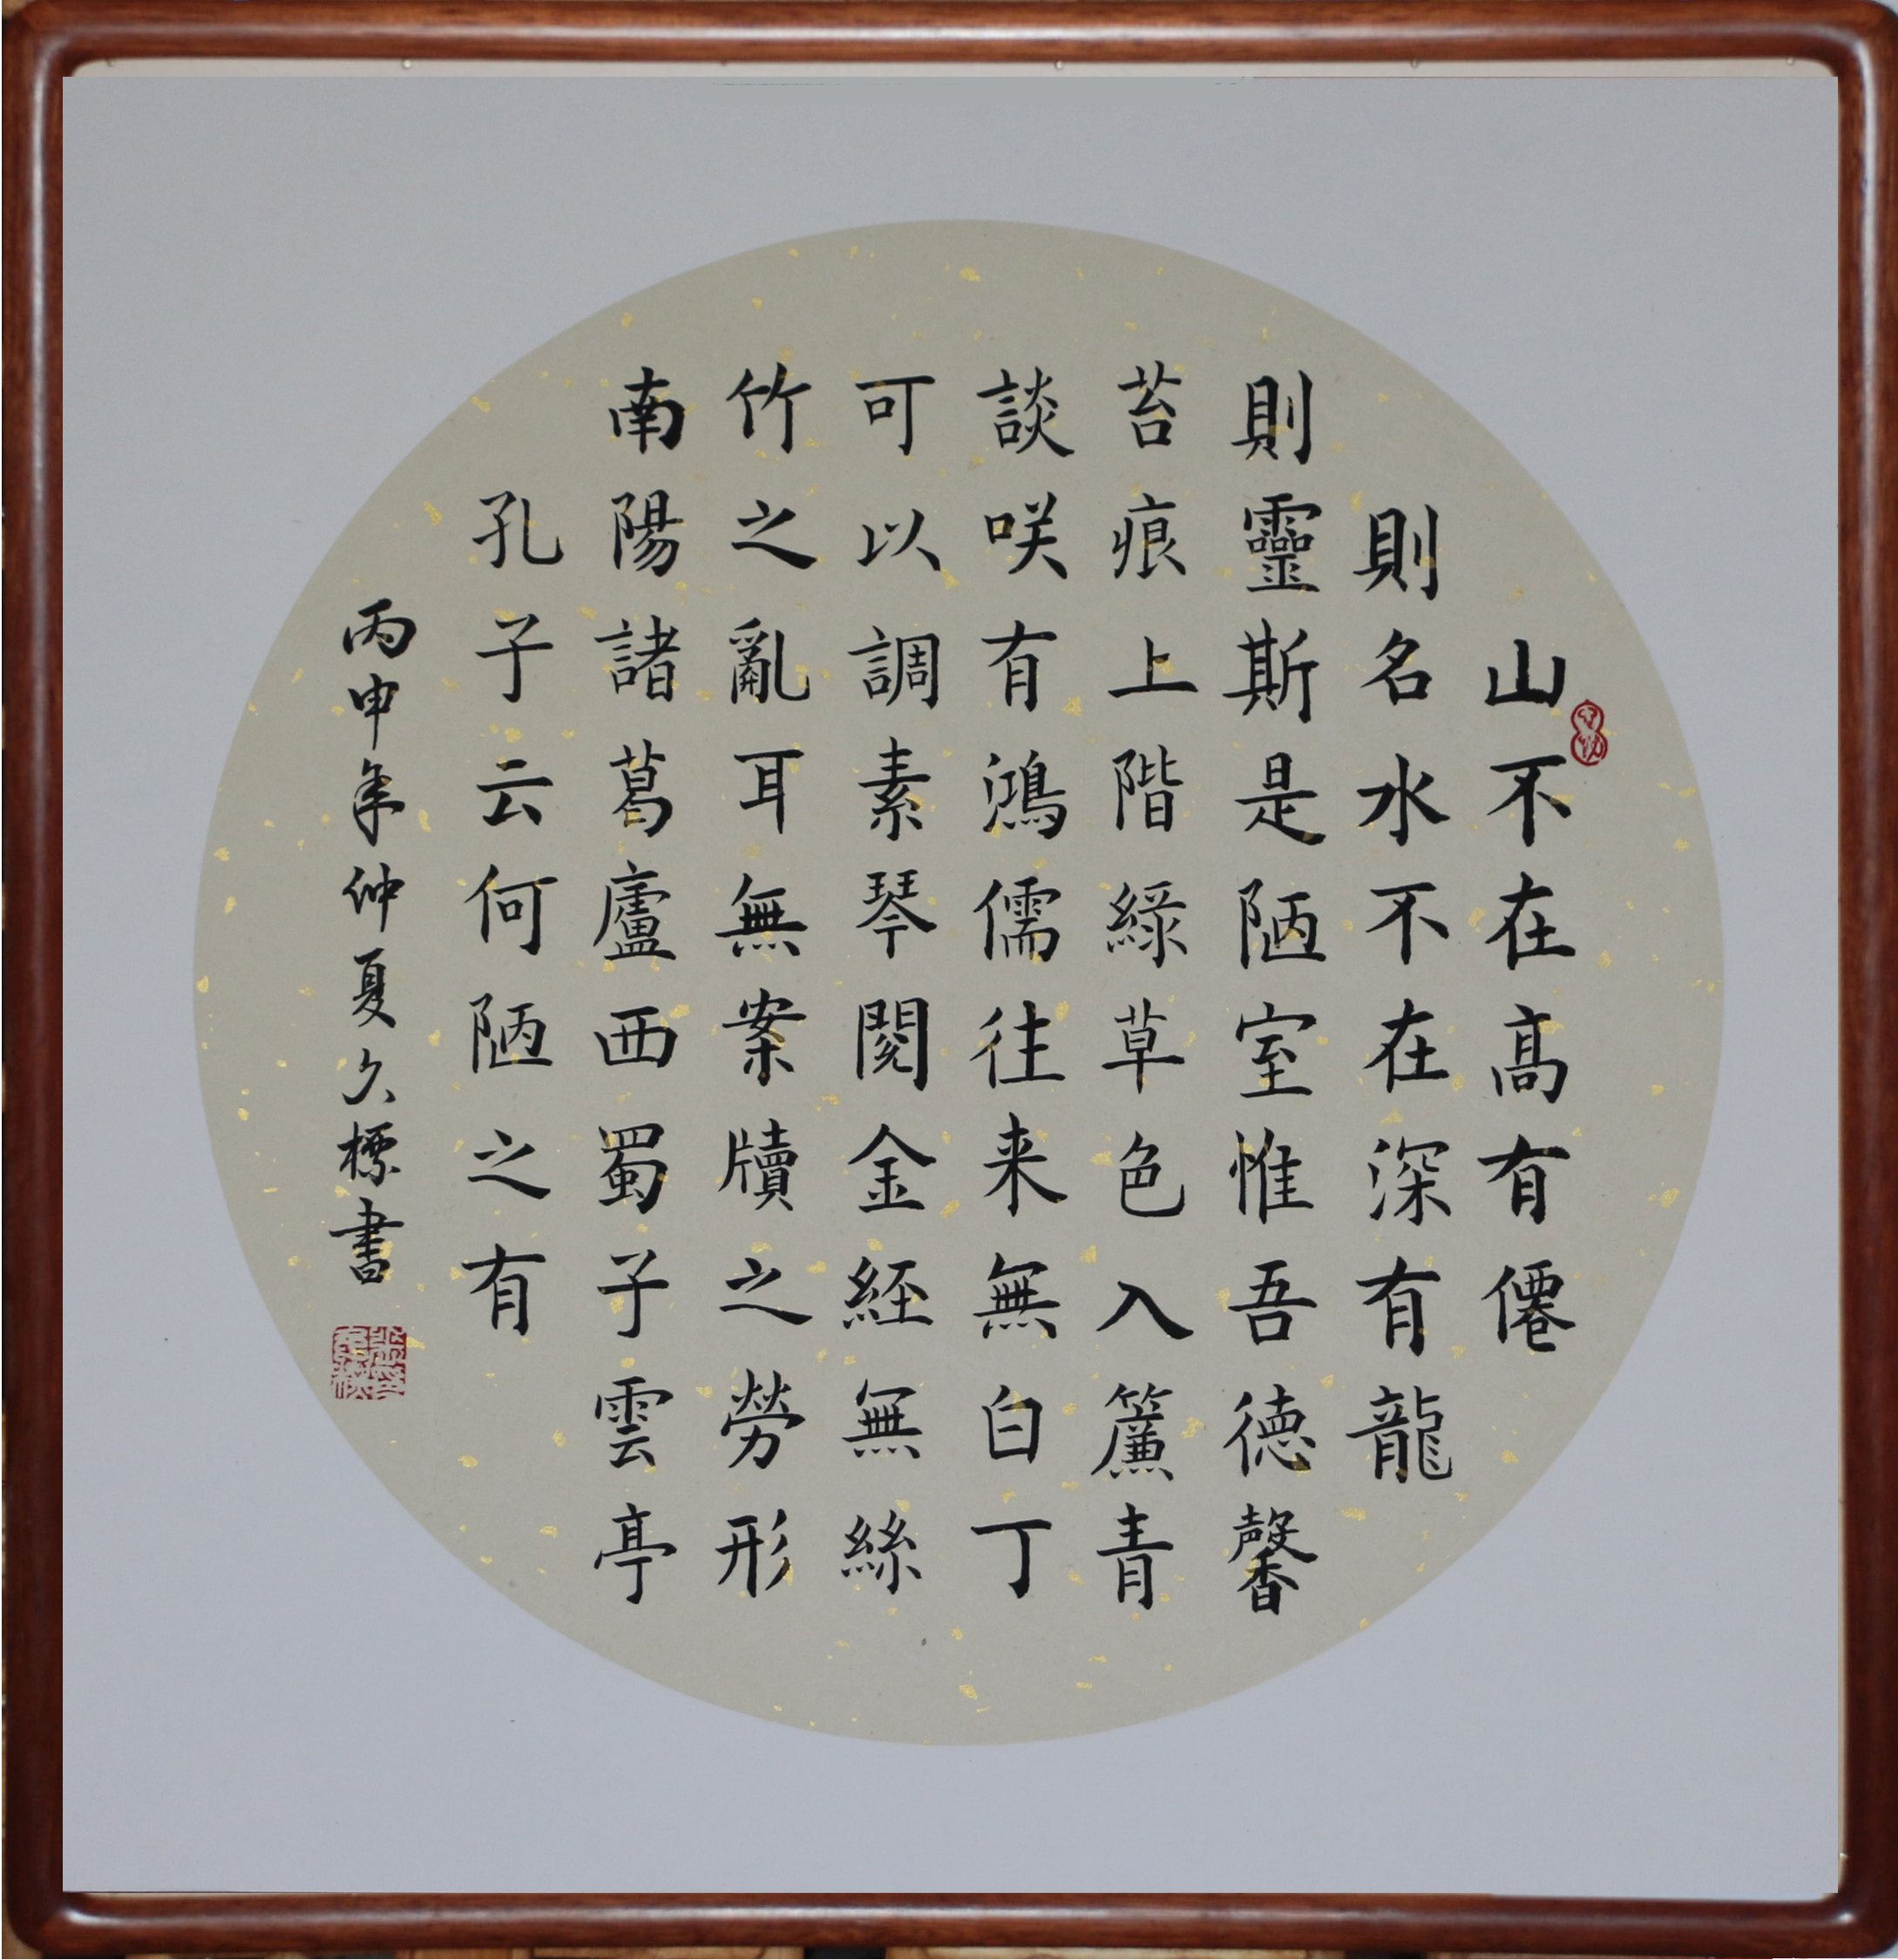 山不在高有僊
則名水不在深有龍
則靈斯是陋室惟吾德馨
苔痕上階緑草色入簾青
談咲有鴻儒往来無白丁
可以調素琴閱金経無絲
竹之亂耳無案牘之勞形
南陽諸葛廬西蜀子雲亭
孔子云何陋之有
丙申年仲夏久標書